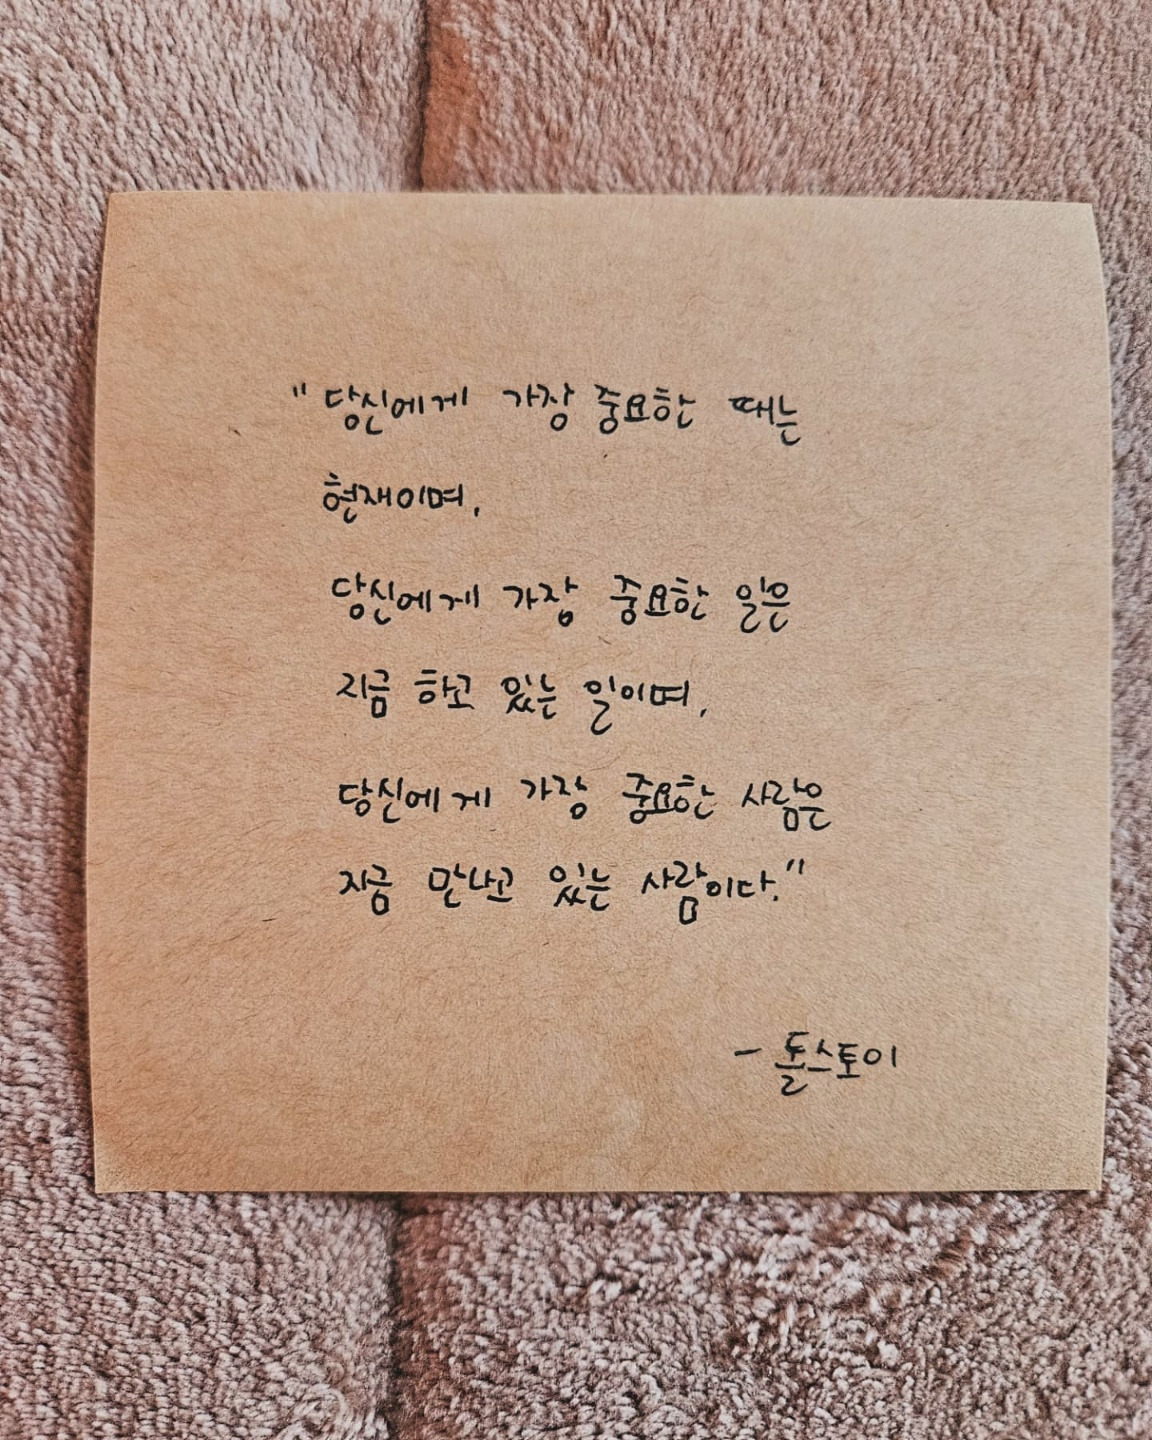 "당신에게 가장 중요한 때는
현재이며,
당신에게 가장 중요한 일은
지금 하고 있는 일이며,
당신에게 가장 중요한 사람은
지금 만나고 있는 사람이다."
- 톨스토이